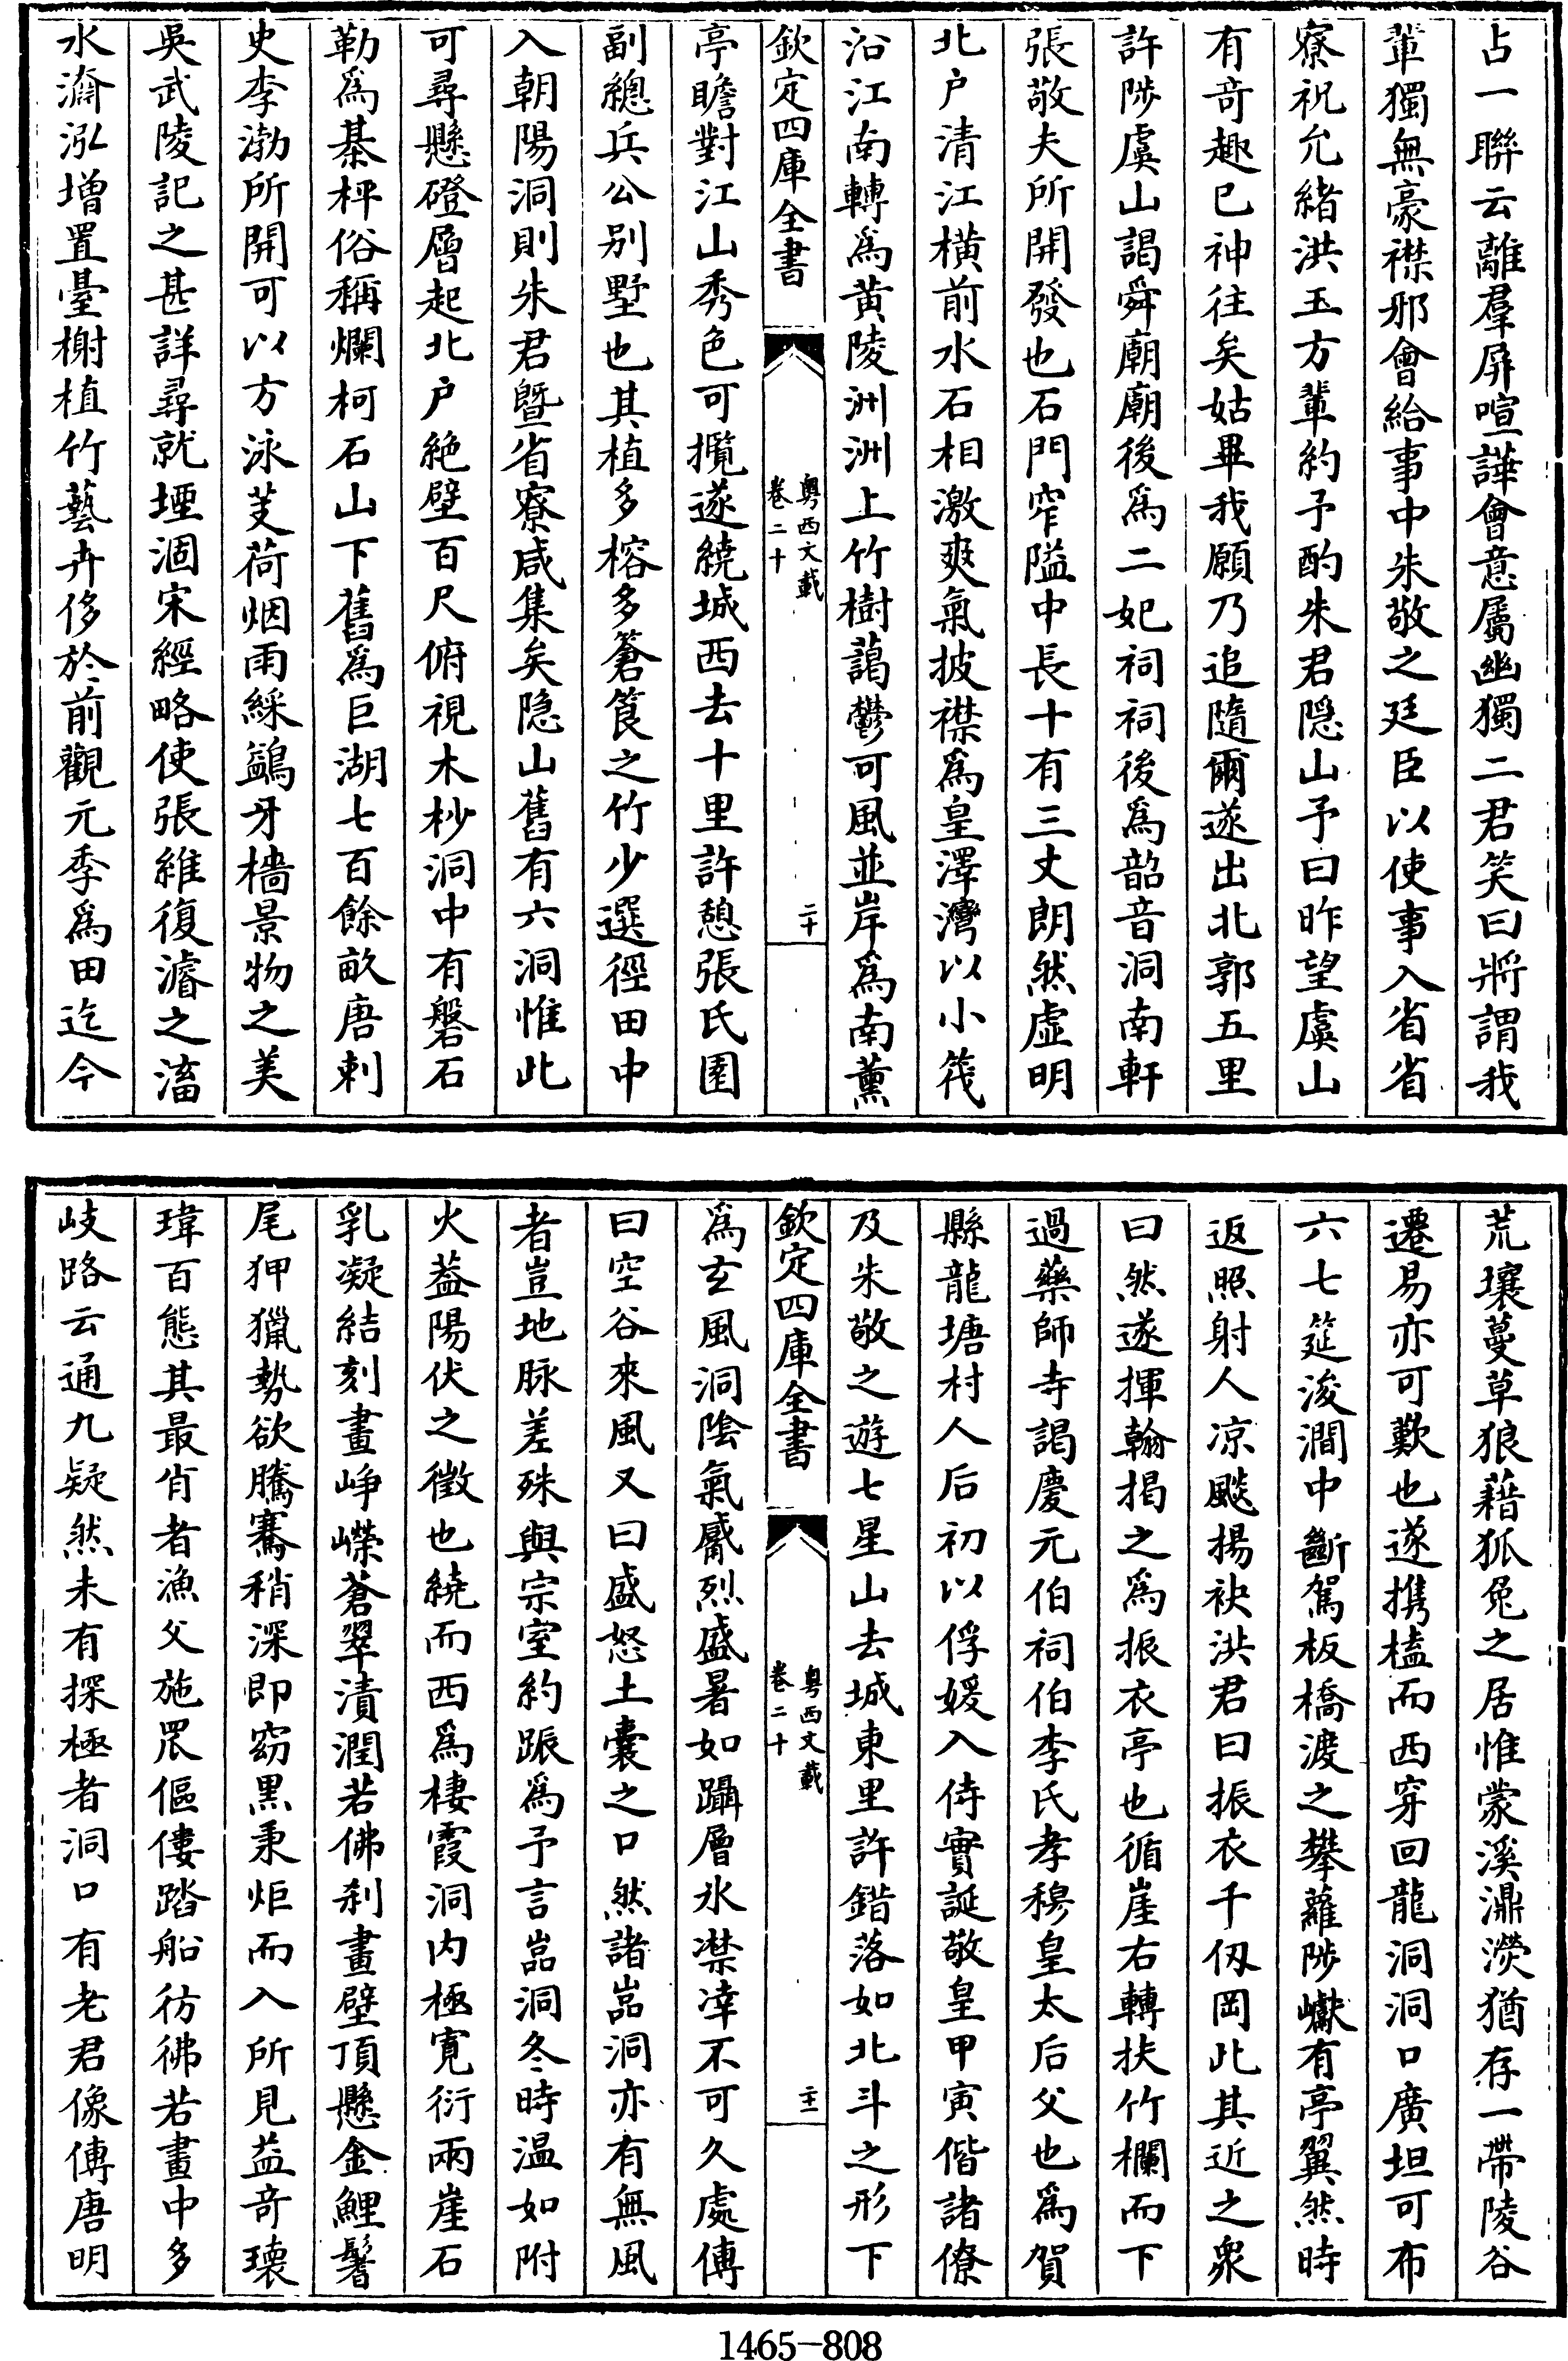 占一聯云離羣屏喧譁會意屬幽獨二君笑曰將謂我
輩獨無豪襟邪會給事中朱敬之廷臣以使事入省省
寮祝允緒洪玉方輩約予酌朱君隠山予曰昨望虞山
有奇趣已神往矣姑畢我願乃追隨爾遂出北郭五里
許陟虞山謁舜廟廟後爲二妃祠祠後爲韶音洞南軒
張敬夫所開發也石門窄隘中長十有三丈朗然虛明
北户清江橫前水石相激爽氣披襟爲皇澤灣以小筏
沿江南轉爲黄陵洲洲上竹樹藹鬱可風並岸爲南薰
欽定四庫全書
粤西文載
卷二十
二十
亭瞻對江山秀色可攬遂繞城西去十里許憩張氏園
副總兵公别墅也其植多榕多篬筤之竹少選徑田中
入朝陽洞則朱君暨省寮咸集矣隠山舊有六洞惟此
可尋懸磴層起北户絶壁百尺俯視木杪洞中有磐石
勒爲棊枰俗稱爛柯石山下舊爲巨湖七百餘畝唐刺
史李渤所開可以方泳芰荷烟雨綵鷁牙檣景物之美
吳武陵記之甚詳尋就堙涸宋經略使張維復濬之滀
水濟泓增置臺榭植竹藝卉侈於前觀元季爲田迄今
荒壤蔓草狼藉狐兔之居惟蒙溪濎濙猶存一帶陵谷
遷易亦可歎也遂携榼而西穿回龍洞洞口廣坦可布
六七筵浚澗中斷駕板橋渡之攀蘿陟巘有亭翼然時
返照射人凉颷揚袂洪君曰振衣千仭岡此其近之衆
曰然遂揮翰揭之爲振衣亭也循崖右轉扶竹欄而下
過藥師寺謁慶元伯祠伯李氏孝穆皇太后父也爲賀
縣龍塘村人后初以俘媛入侍實誕敬皇甲寅偕諸僚
及朱敬之遊七星山去城東里許錯落如北斗之形下
欽定四庫全書
粤西文載
卷二十
二十一
爲玄風洞陰氣觱烈盛暑如躡層氷凚凓不可久處傳
曰空谷來風又曰盛怒土囊之口然諸嵓洞亦有無風
者豈地脉差殊與宗室約踬爲予言嵓洞冬時温如附
火葢陽伏之徵也繞而西爲棲霞洞内極寛衍兩崖石
乳凝結刻畫崢嶸蒼翠漬潤若佛刹畫壁頂懸金鯉鬐
尾狎獵勢欲騰騫稍深即窈黒秉炬而入所見益奇瓌
瑋百態其最肖者漁父施罛傴僂踏船彷彿若畫中多
岐路云通九疑然未有探極者洞口有老君像傳唐明
1465-808